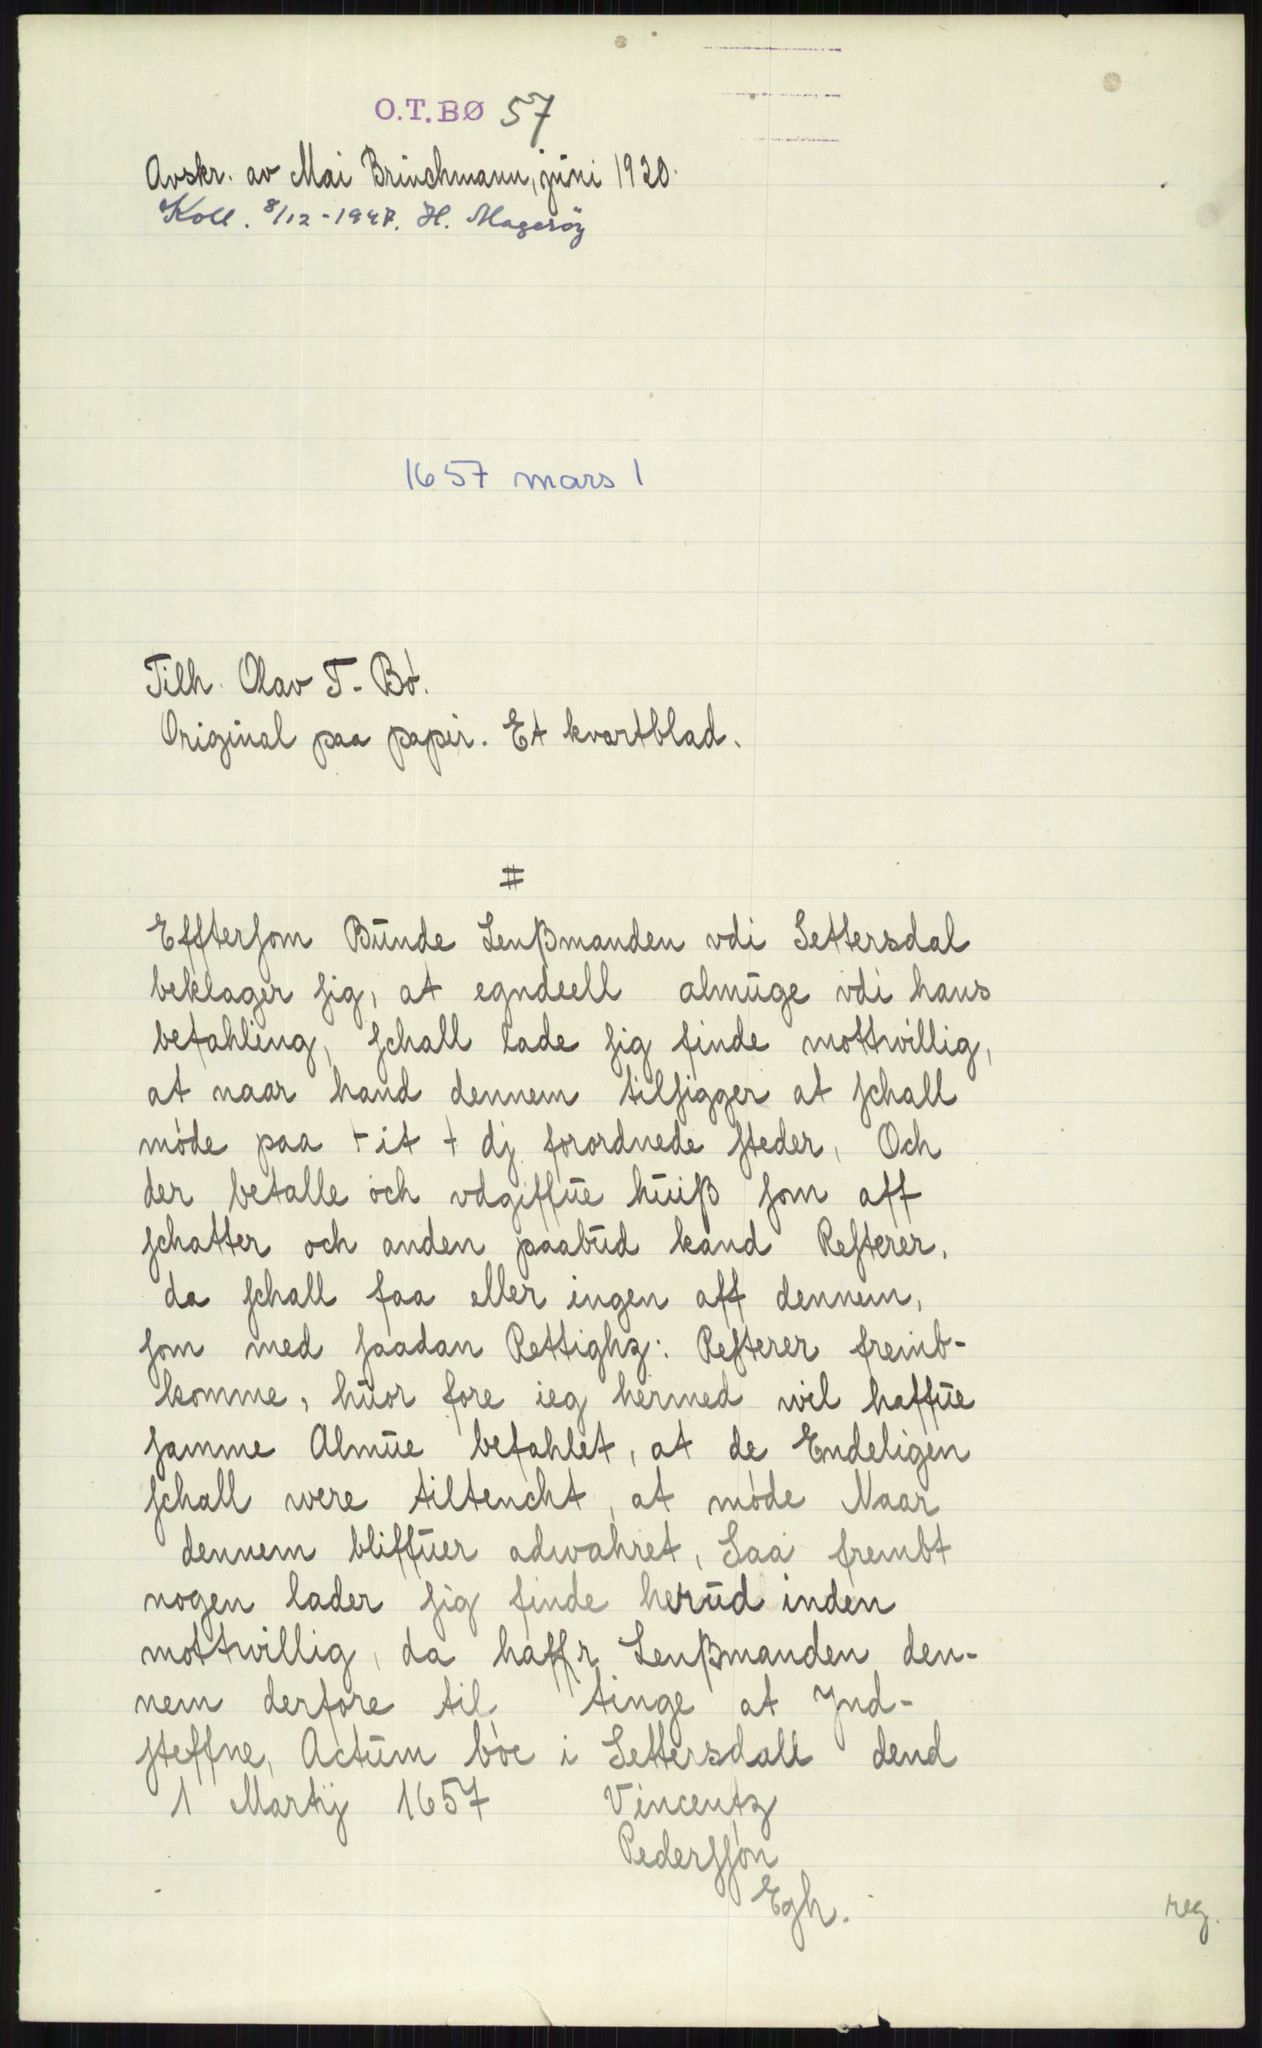 O.T.BØ 57
Avskr. av Mai Brinchmann, juni 1920.
Koll. 8/12-1947. H. Magerøy
1657 mars 1
Tilh. Olav T. Bø.
Original paa papir. Et kvartblad.
#
Efftersom Bunde Lenßmanden vdi Settersdal
beklager sig, at egndeell almuge vdi hans
befahling, schall lade sig finde mottwillig,
at naar hand dennem tilsigger at schall
møde paa + it + dj forordnede steder, Och
der betalle och vdgiffue huiß som aff
schatter och anden paabud kand Resterer,
da schall faa eller ingen aff dennem,
som med saadan Rettighz: Resterer fremb-
komme, huor fore ieg hermed wil haffue
samme Almue befahlet, at de Endeligen
schall were tiltencht, at møde Naar
dennem bliffuer adwahret, Saa frembt
nogen lader sig finde herud inden
mottwillig, da haffr Lenßmanden den-
nem derfore til tinge at Jnd-
steffne, Actum bøe i Settersdall dend
1 Martij 1657 Vincentz
Pederssøn
Egh.
reg.